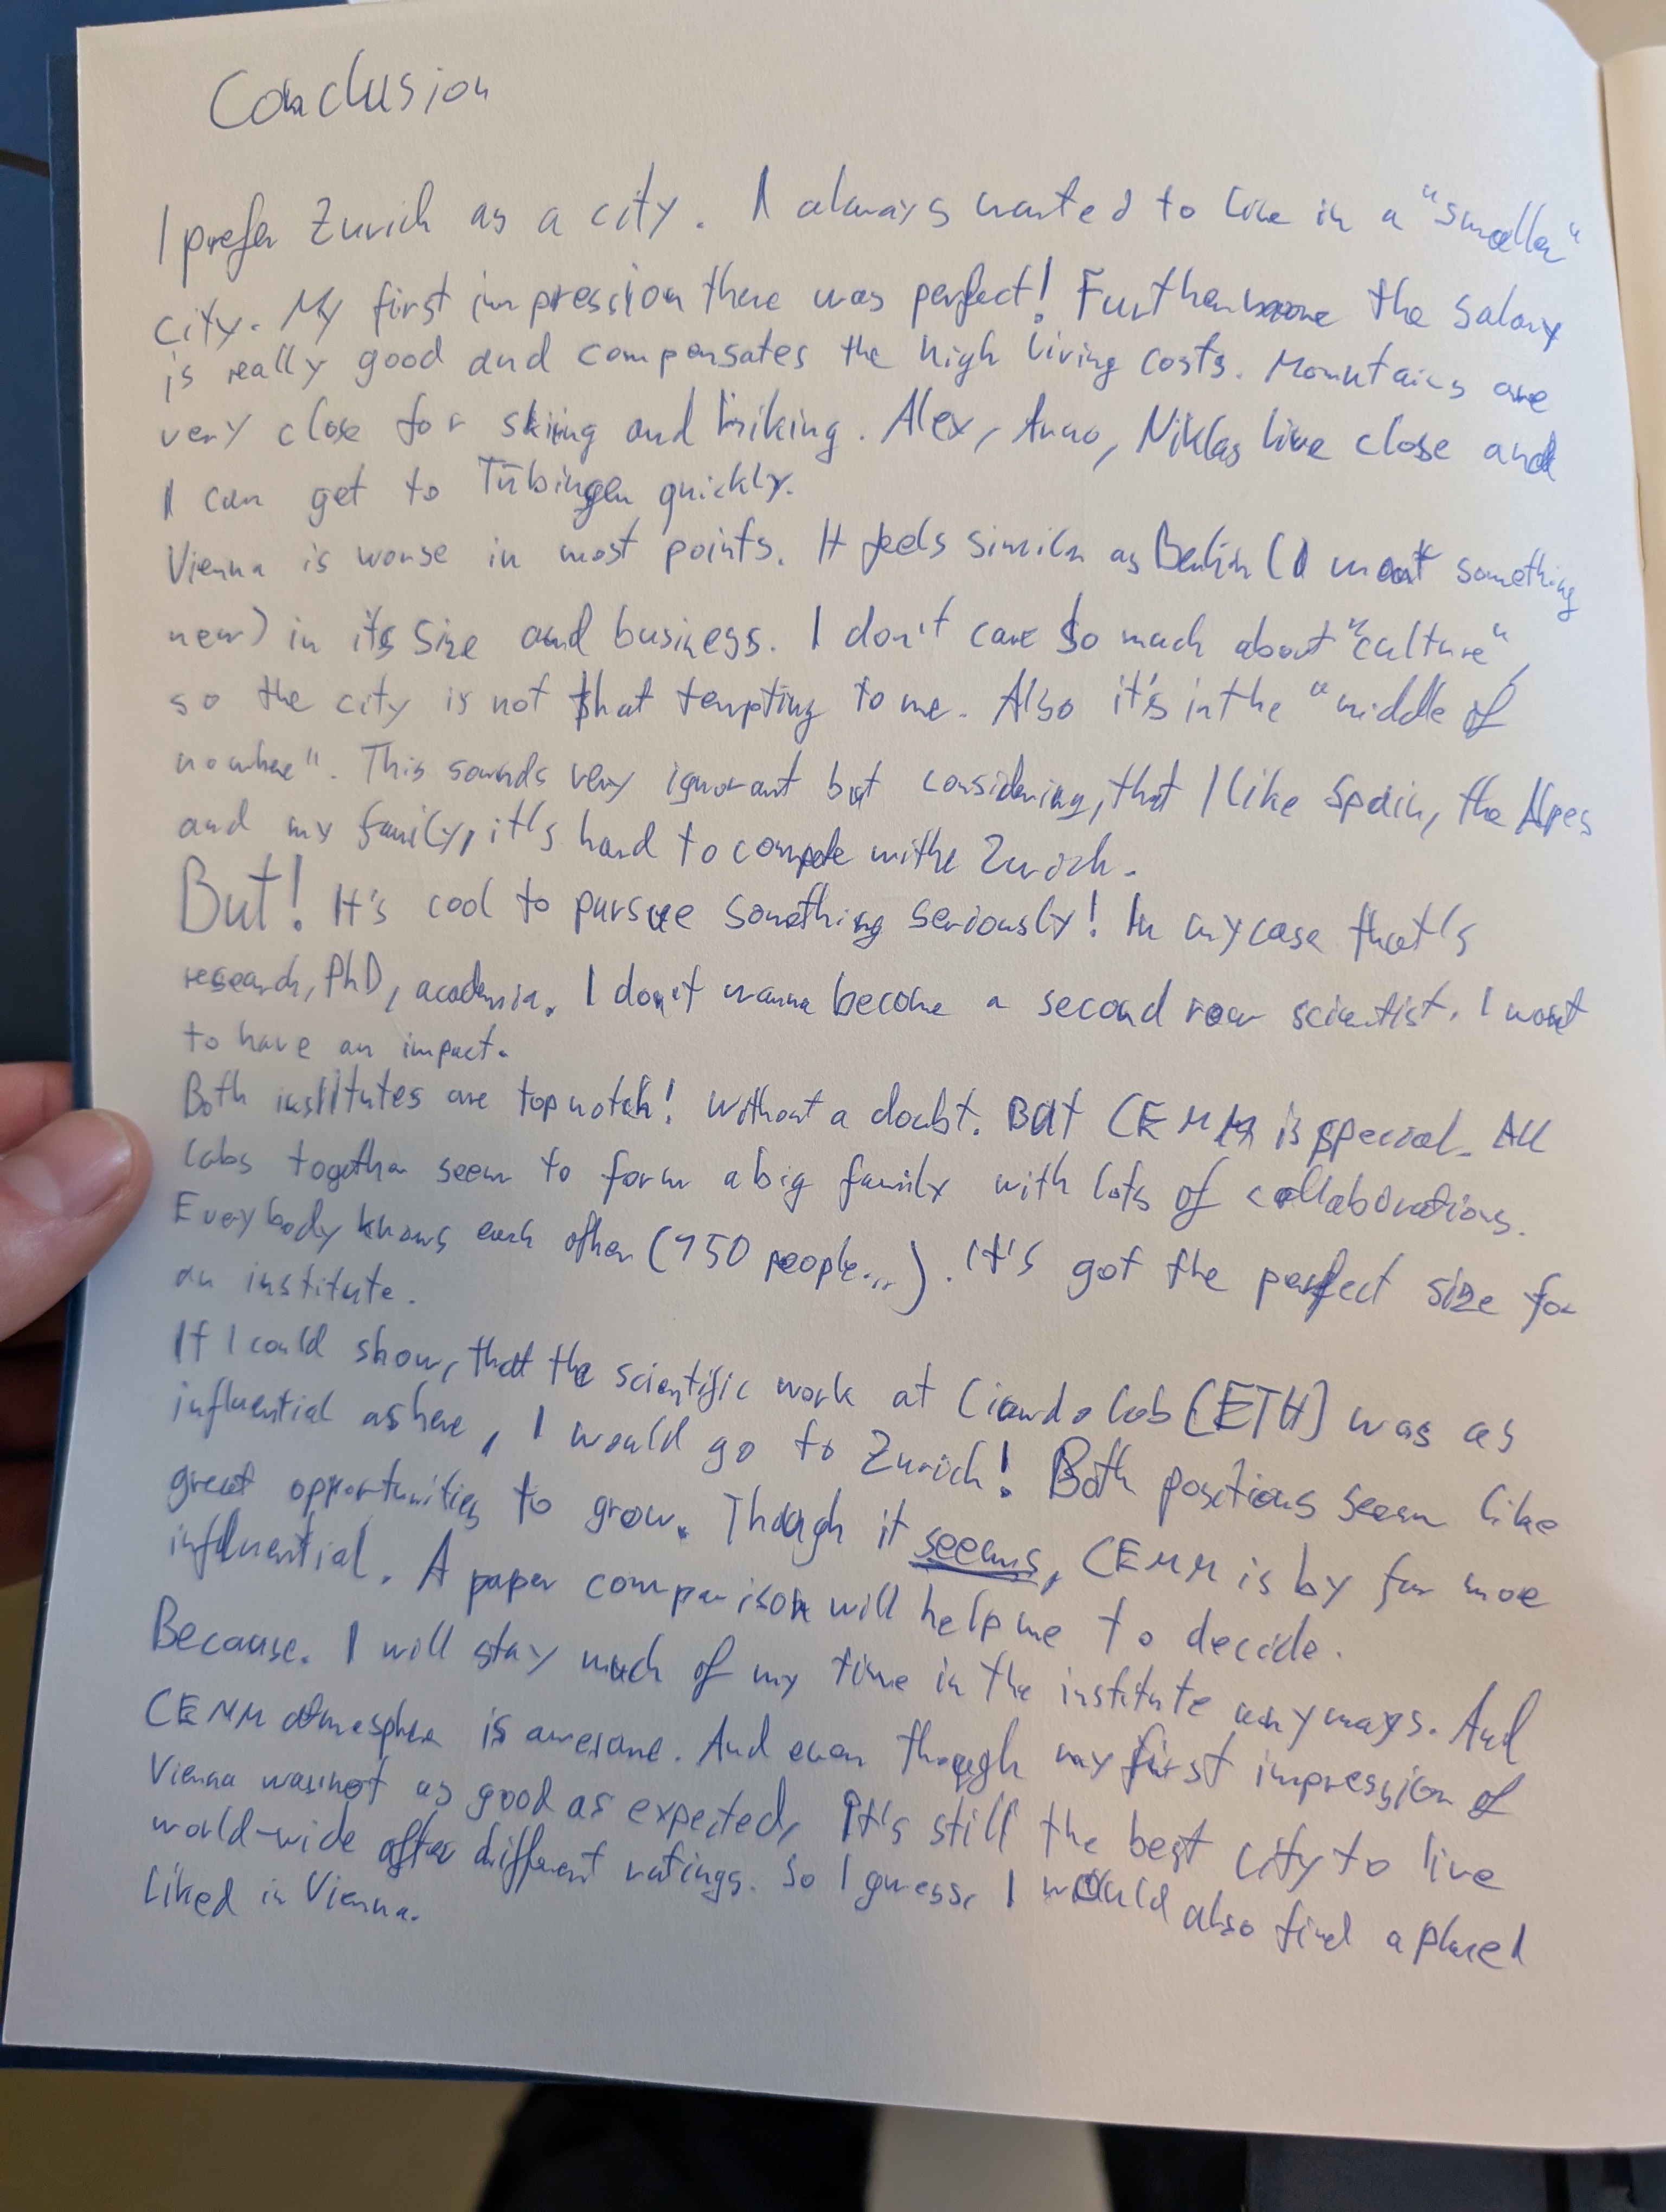 Conclusion
I prefer Zurich as a city. I always wanted to live in a "smaller"
city. My first impression there was perfect! Furthermore the salary
is really good and compensates the high living costs. Mountains are
very close for skiing and hiking. Alex, Anno, Niklas live close and
I can get to Tübingen quickly.
Vienna is worse in most points. It feels similar as Berlin (I want something
new) in its size and business. I don't care so much about "culture",
so the city is not that tempting to me. Also it's in the "middle of
nowhere". This sounds very ignorant but considering, that I like Spain, the Alpes
and my family, it's hard to compete withe Zurich.
But! It's cool to pursue something seriously! In my case that's
research, PhD, academia. I don't wanna become a second row scientist. I want
to have an impact.
Both institutes are top notch! Without a doubt. But CEMM is special. All
labs together seem to form a big family with lots of collaborations.
Everybody knows each other (150 people...). It's got the perfect size for
an institute.
If I could show, that the scientific work at lab (ETH) was as
influential as here, I would go to Zurich! Both positions seem like
great opportunities to grow. Though it seems, CEMM is by far more
influential. A paper comparison will help me to decide.
Because. I will stay much of my time in the institute anyways. And
CEMM atmosphere is awesome. And even though my first impression of
Vienna was not as good as expected, it's still the best city to live
world-wide after different ratings. So I guess, I would also find a place I
liked in Vienna.